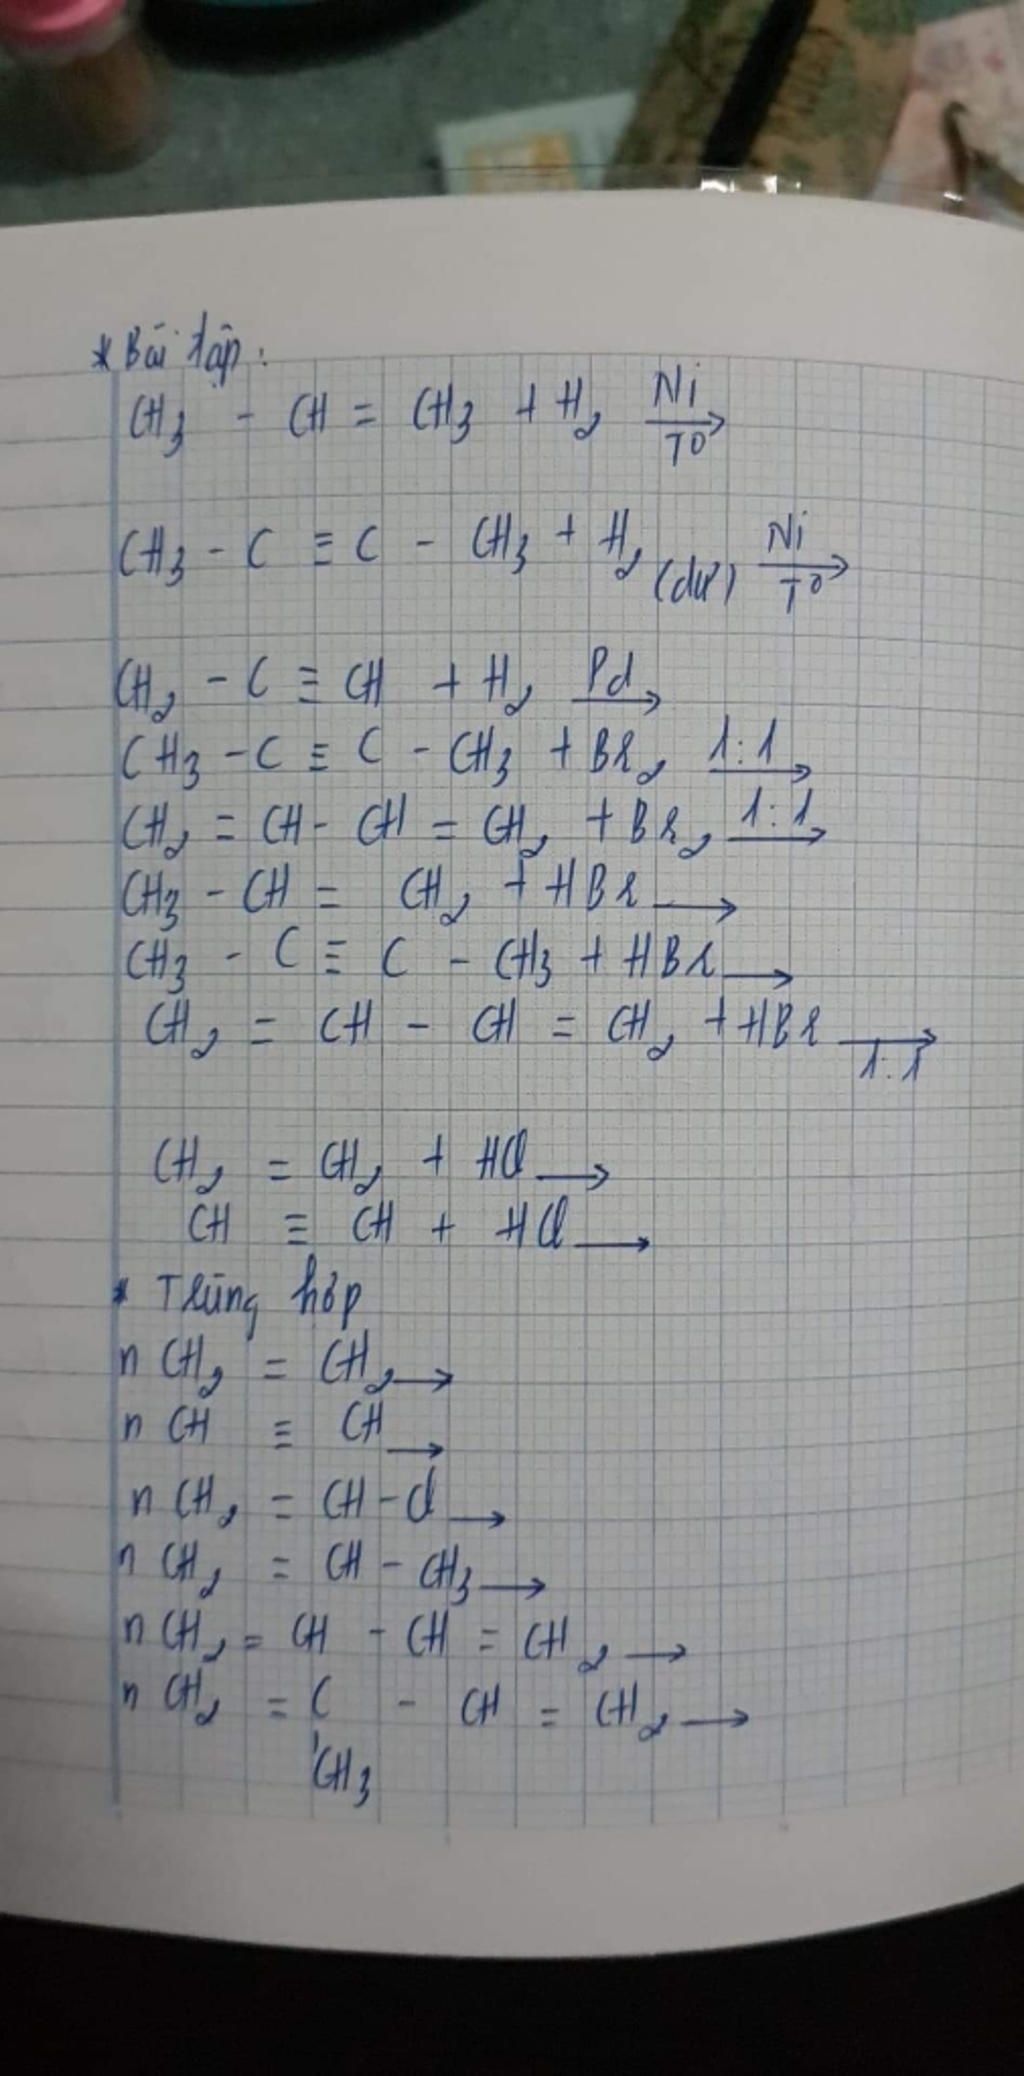 * Bài tập:
CH₃ - CH = CH₃ + H₂ Ni T⁰ →
CH₃ - C ≡ C - CH₃ + H₂ (dư) Ni T⁰ →
CH₂ - C ≡ CH + H₂ Pd →
CH₃ - C ≡ C - CH₃ + Br₂ 1:1 →
CH₂ = CH - CH = CH₂ + Br₂ 1:1 →
CH₃ - CH = CH₂ + HBr →
CH₃ - C ≡ C - CH₃ + HBr →
CH₂ = CH - CH = CH₂ + HBr → 1:1
CH₂ = CH₂ + HCl →
CH ≡ CH + HCl →
* Trùng hợp
n CH₂ = CH₂ →
n CH ≡ CH →
n CH₂ = CH - Cl →
n CH₂ = CH - CH₃ →
n CH₂ = CH - CH = CH₂ →
n CH₂ = C - CH = CH₂ →
CH₃